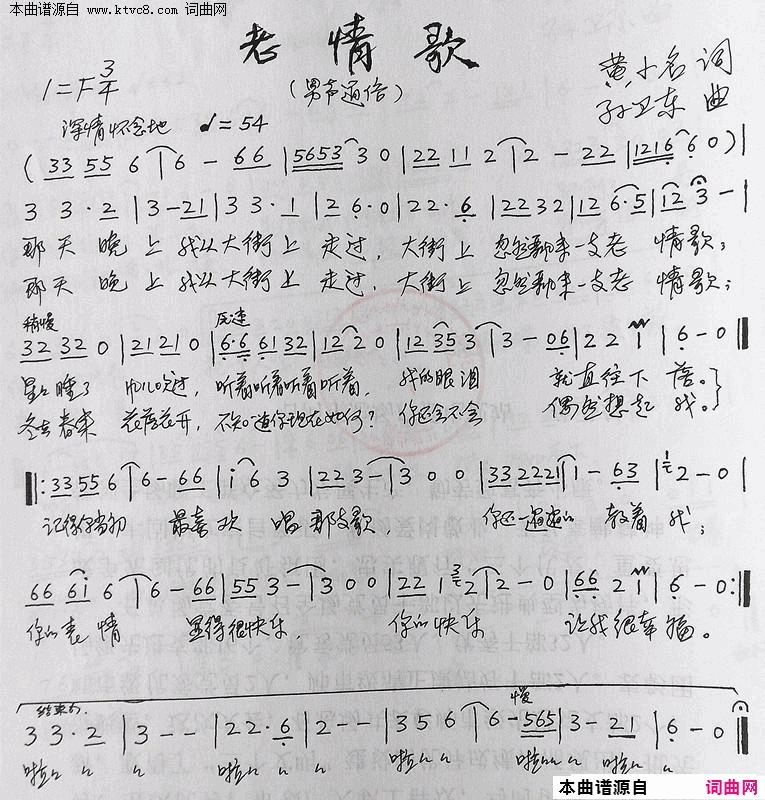 本曲谱源自
www.ktvc8.com 词曲网
老情歌
1=F 3/4
(男声通俗)
黄小名 词
孙卫东 曲
深情怀念地 ♩=54
(33 55 6 | 6 - 66 | 5653 3 0 | 22 11 2 | 2 - 22 | 1216 6 0) |
3 3·2 | 3 - 21 | 3 3·1 | 2 6·0 | 22·6 | 22 32 | 12 6·5 | 12 3 - |
那天 晚上 我从大街上 走过，大街上 忽然飘来一支老 情歌；
那天 晚上 我从大街上 走过，大街上 忽然飘来一支老 情歌；
稍慢
原速
32 32 0 | 21 21 0 | 6·6 61 32 | 12 2 0 | 12 35 3 | 3 - 06 | 2 2 1 | 6 - 0
星星睡了 风儿吹过，听着听着听着听着，我的眼泪 就直往下 落。
冬去春来 花落花开，不知道你现在如何？你还会不会 偶然想起 我。
33 55 6 | 6 - 66 | i 6 3 | 22 3 - | 3 0 0 | 33 222 1 | 1 - 63 | 2 - 0
记得你当初 最喜欢 唱那支歌， 你还一遍遍的 教着我；
66 6i 6 | 6 - 66 | 55 3 - | 3 0 0 | 22 1 2 | 2 - 0 | 66 2 1 | 6 - 0
你的表情 显得很快乐， 你的快乐 让我很幸福。
结束句
慢
3 3·2 | 3 - - | 2 2·6 | 2 - - | 3 5 6 | 6 - 565 | 3 - 21 | 6 - 0
啦 啦 啦 啦 啦 啦
本曲谱源自
词曲网